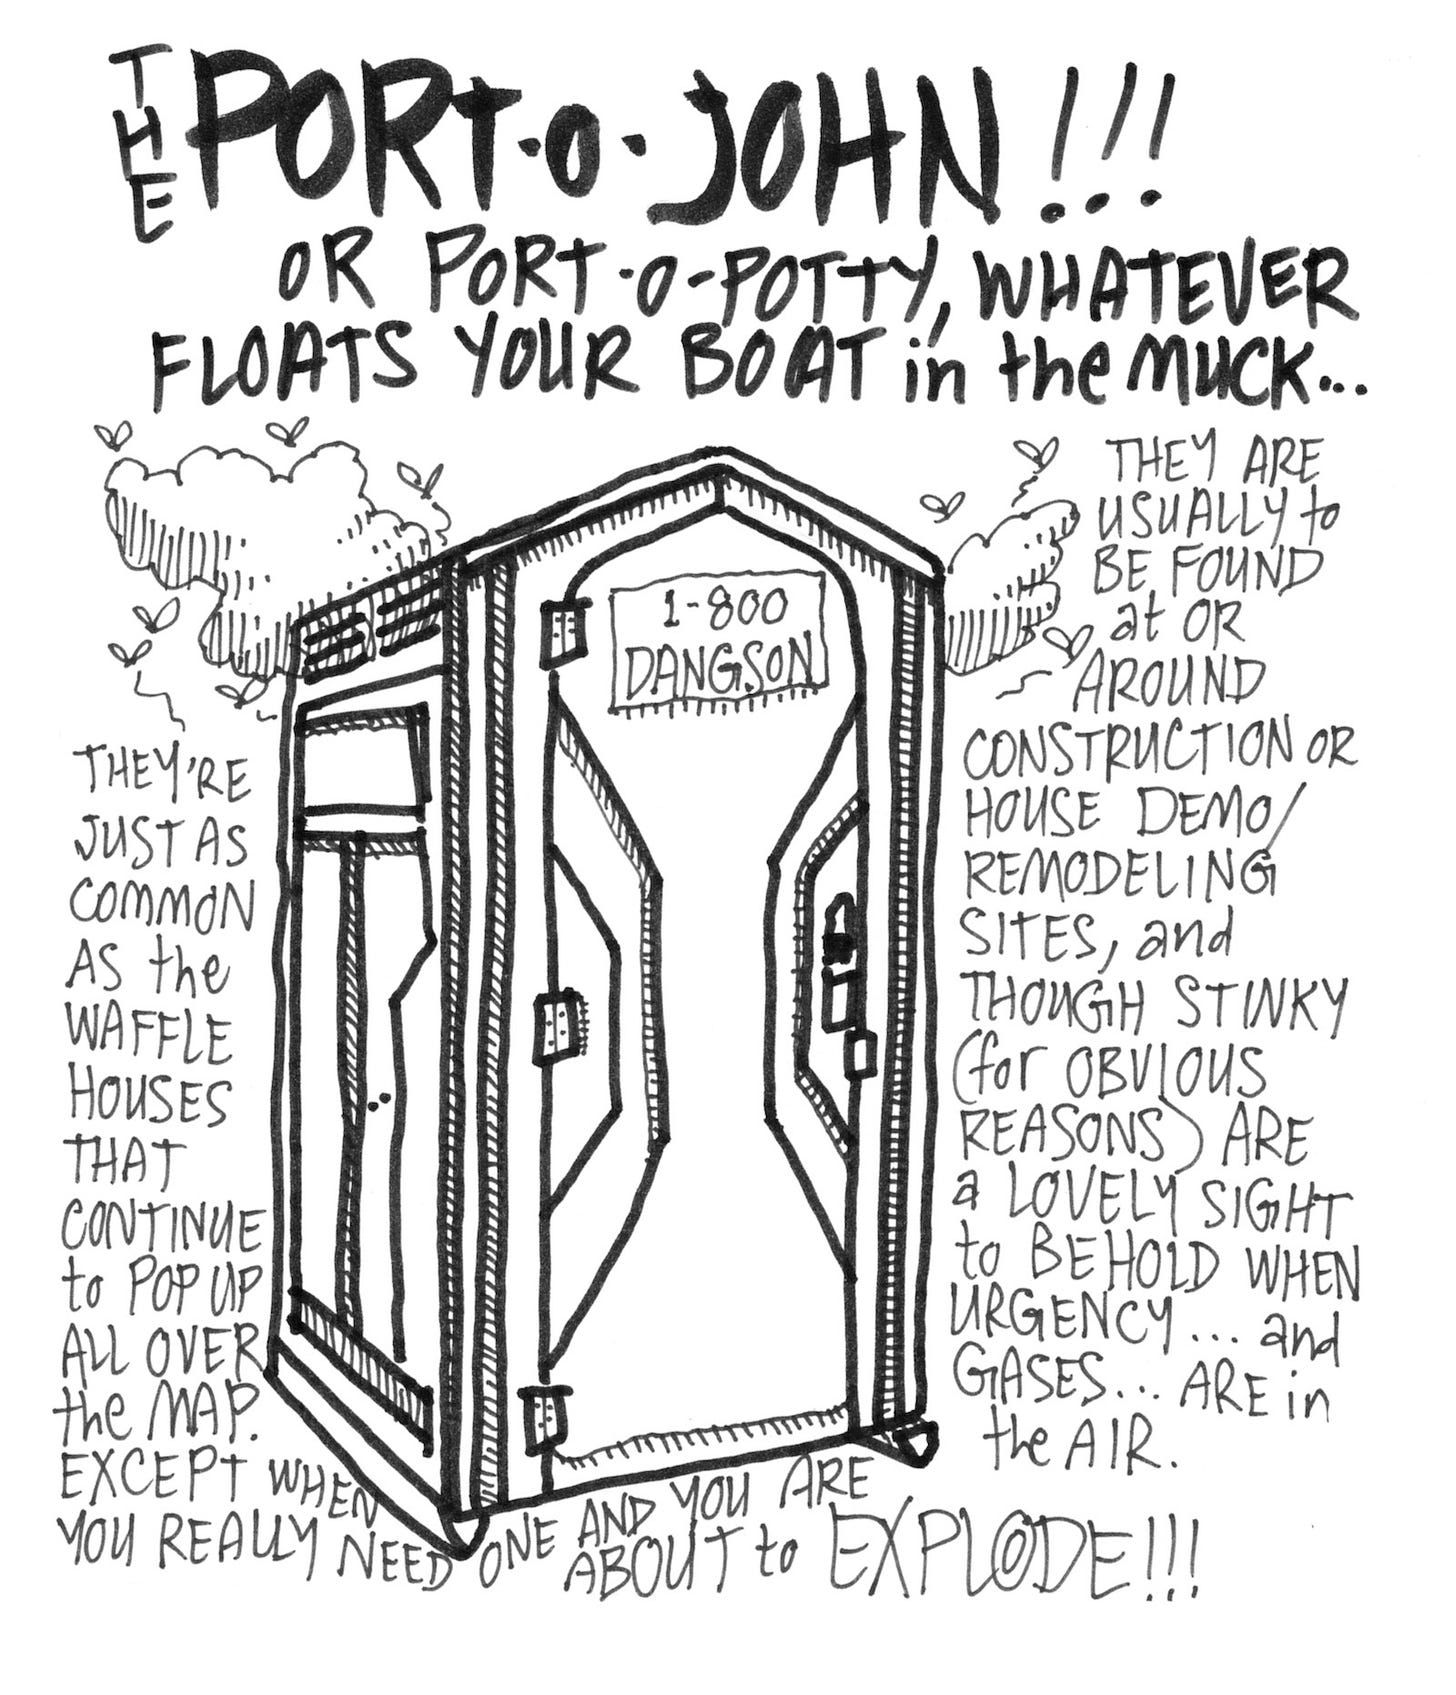 THE PORT-O-JOHN!!!
OR PORT-O-POTTY, WHATEVER
FLOATS YOUR BOAT in the MUCK...
THEY ARE
USUALLY to
BE FOUND
at OR
AROUND
CONSTRUCTION OR
HOUSE DEMO/
REMODELING
SITES, and
THOUGH STINKY
(for OBVIOUS
REASONS) ARE
a LOVELY SIGHT
to BEHOLD WHEN
URGENCY... and
GASES... ARE in
the AIR.
1-800
DANGSON
THEY'RE
JUST AS
COMMON
AS the
WAFFLE
HOUSES
THAT
CONTINUE
to POP UP
ALL OVER
the MAP.
EXCEPT WHEN
YOU REALLY NEED ONE AND YOU ARE
ABOUT to EXPLODE!!!